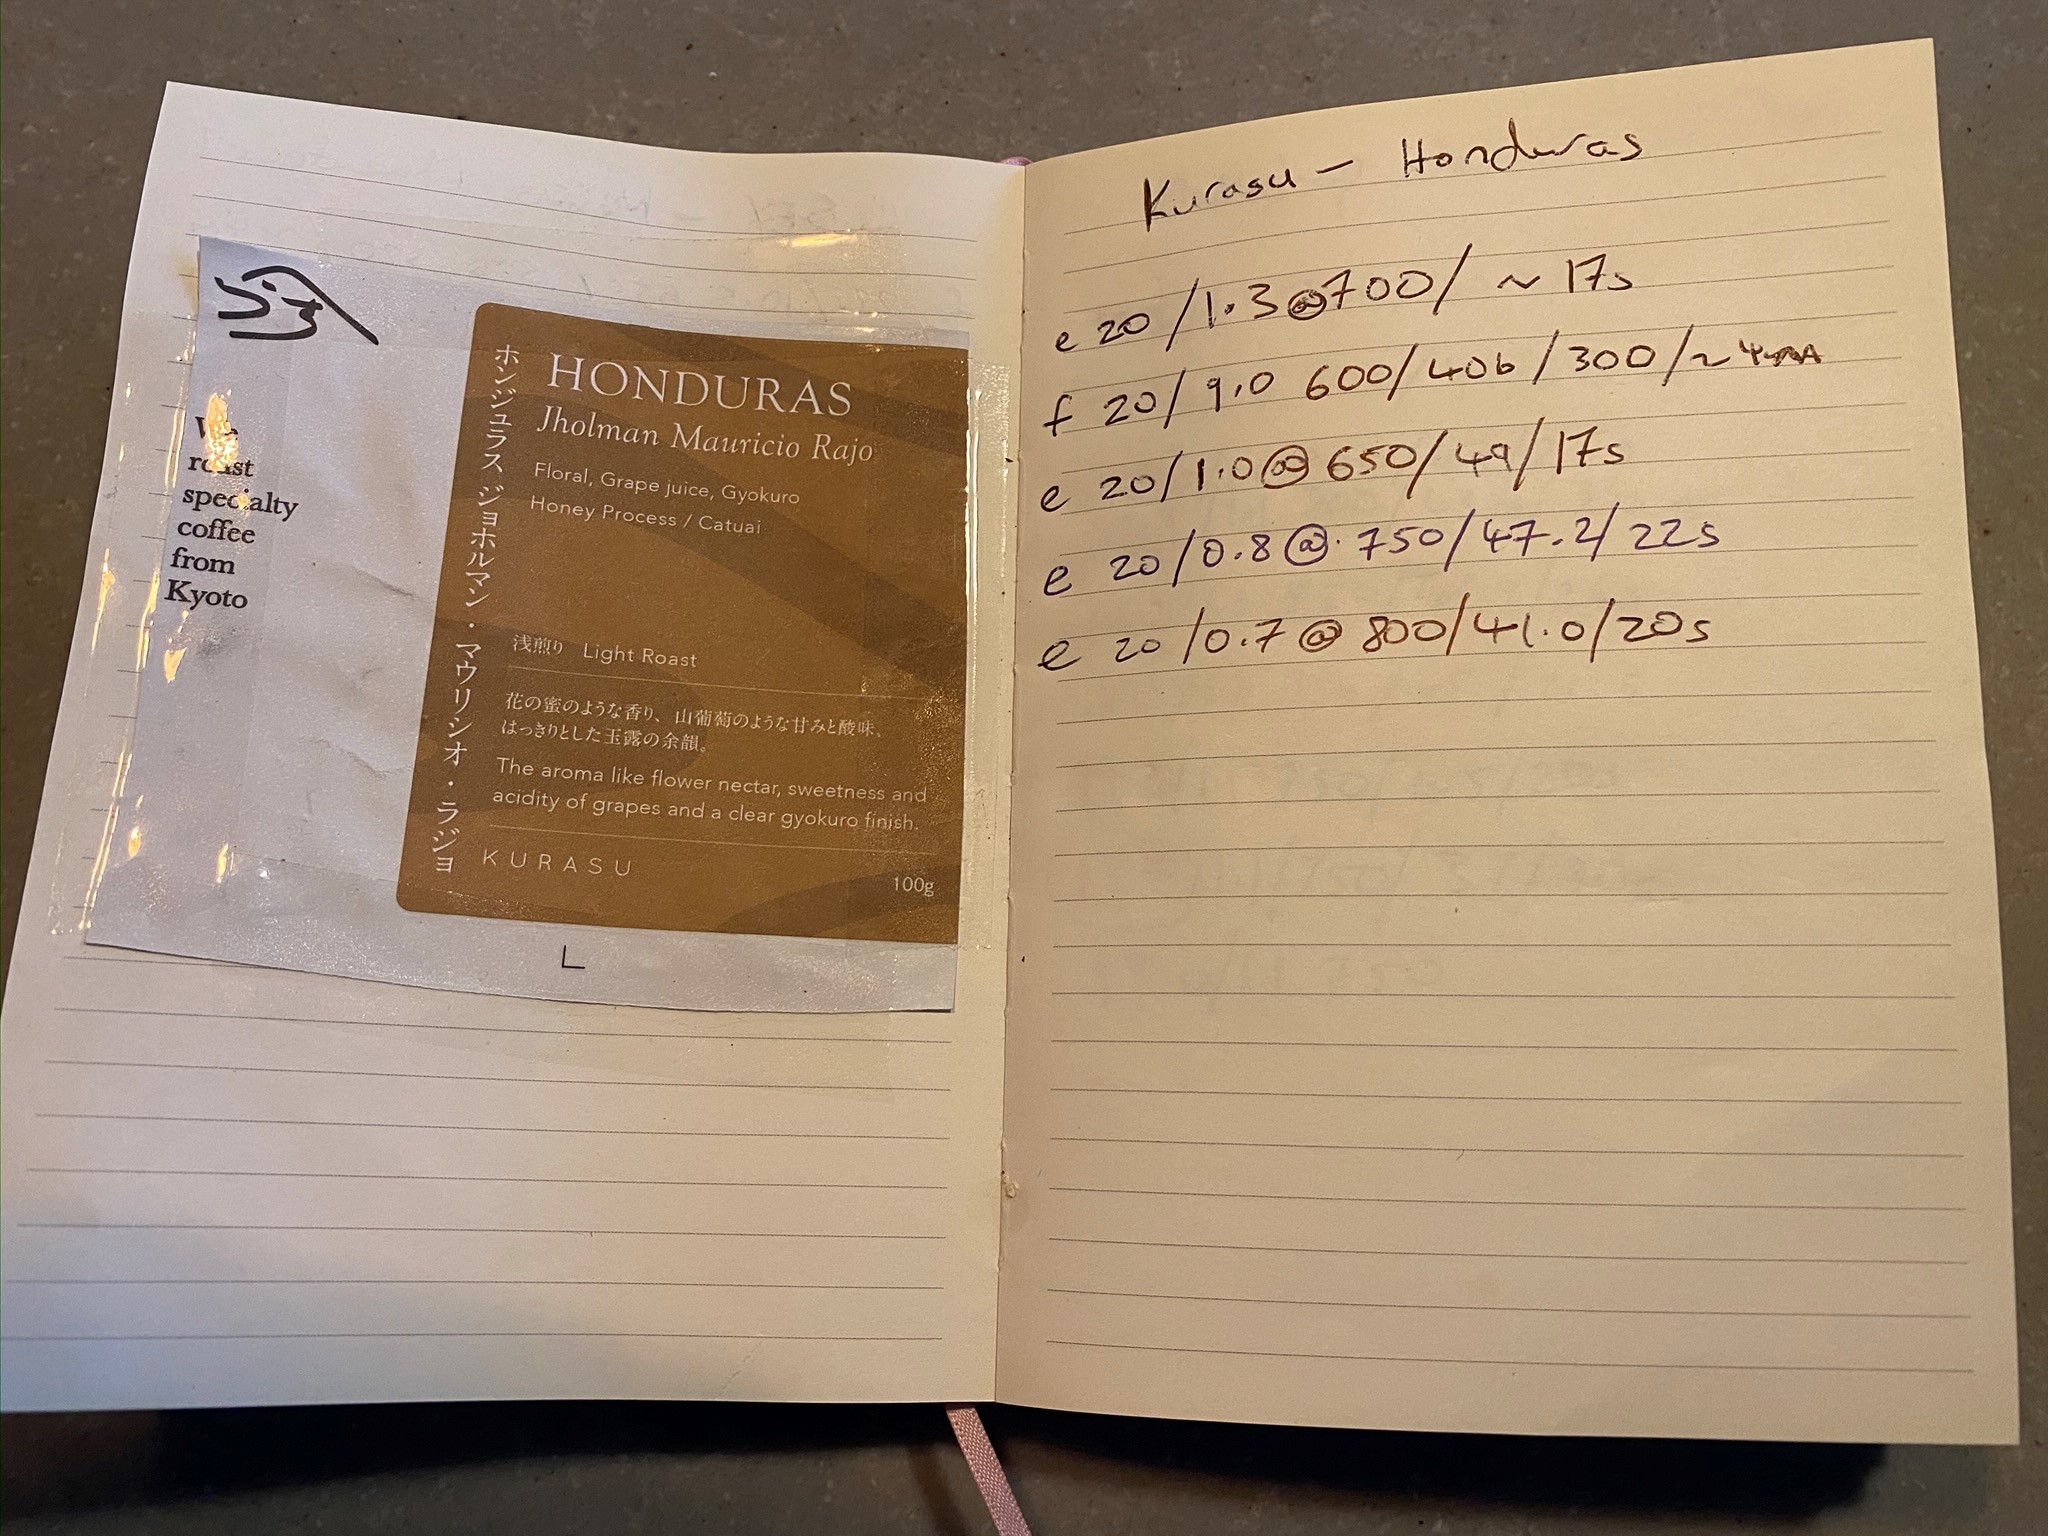 We
roast
specialty
coffee
from
Kyoto
ホンジュラス ジョホルマン・マウリシオ・ラジョ
HONDURAS
Jholman Mauricio Rajo
Floral, Grape juice, Gyokuro
Honey Process / Catuai
浅煎り Light Roast
花の蜜のような香り、山葡萄のような甘みと酸味、
はっきりとした玉露の余韻。
The aroma like flower nectar, sweetness and
acidity of grapes and a clear gyokuro finish.
KURASU
100g
Kurasu - Honduras
e 20/1.3@700/ ~17s
f 20/9.0 600/406/300/~
e 20/1.0@650/49/17s
e 20/0.8@750/47.2/22s
e 20/0.7@800/41.0/20s